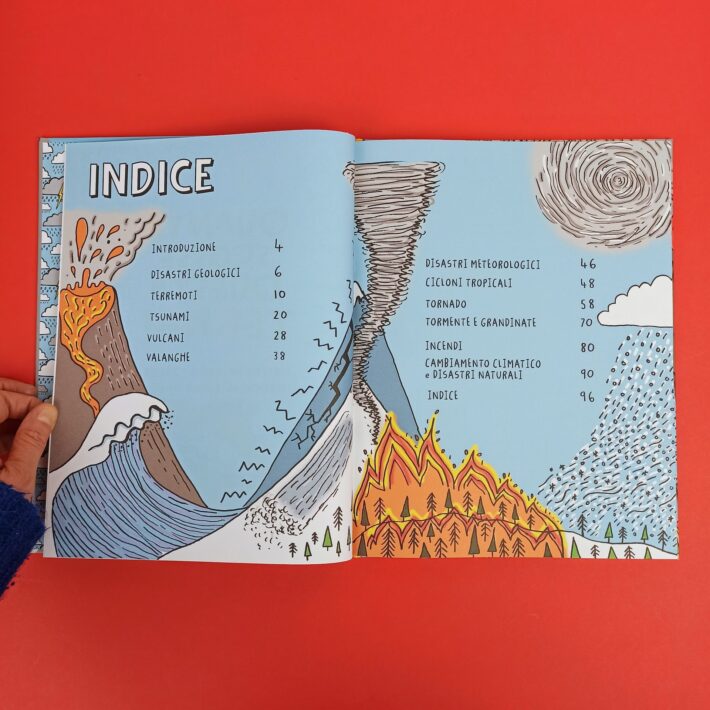 INDICE
INTRODUZIONE 4
DISASTRI GEOLOGICI 6
TERREMOTI 10
TSUNAMI 20
VULCANI 28
VALANGHE 38
DISASTRI METEOROLOGICI 46
CICLONI TROPICALI 48
TORNADO 58
TORMENTE E GRANDINATE 70
INCENDI 80
CAMBIAMENTO CLIMATICO
e DISASTRI NATURALI 90
INDICE 96